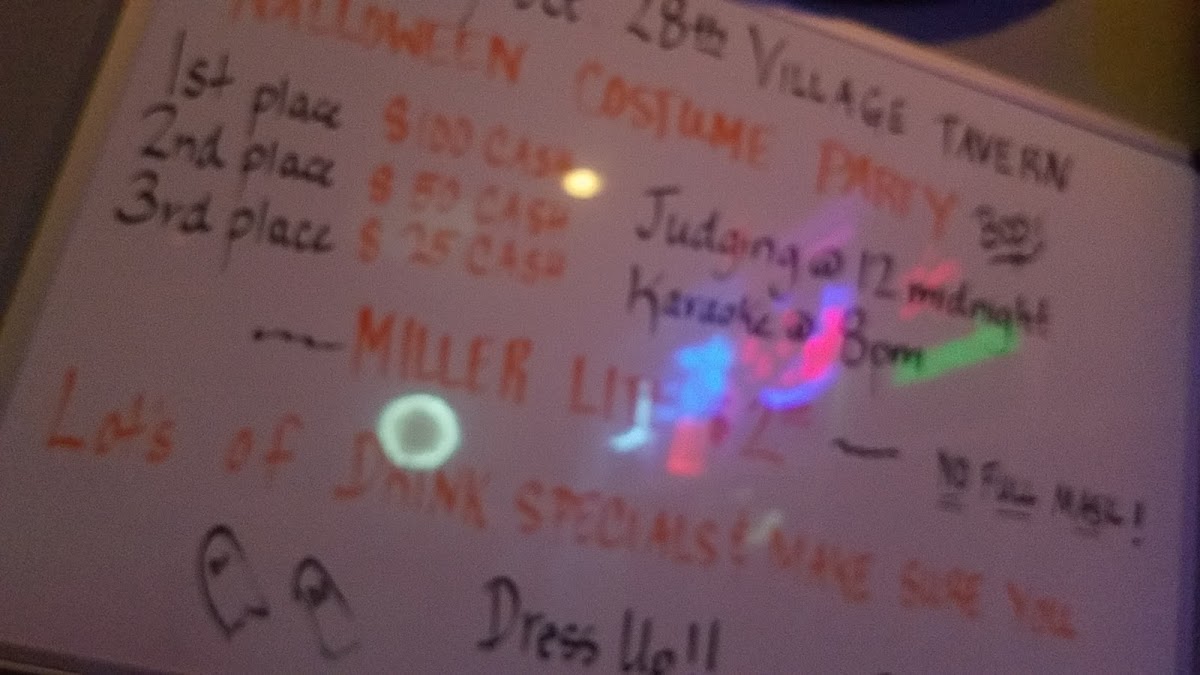 Oct 28th VILLAGE TAVERN
HALLOWEEN COSTUME PARTY BOO!
1st place $100 CASH
2nd place $50 CASH
3rd place $25 CASH
Judging @ 12 midnight
Karaoke @ 8pm
MILLER LITE $2
NO FULL MASK!
Lots of DRINK SPECIALS! MAKE SURE YOU
Dress Up!!